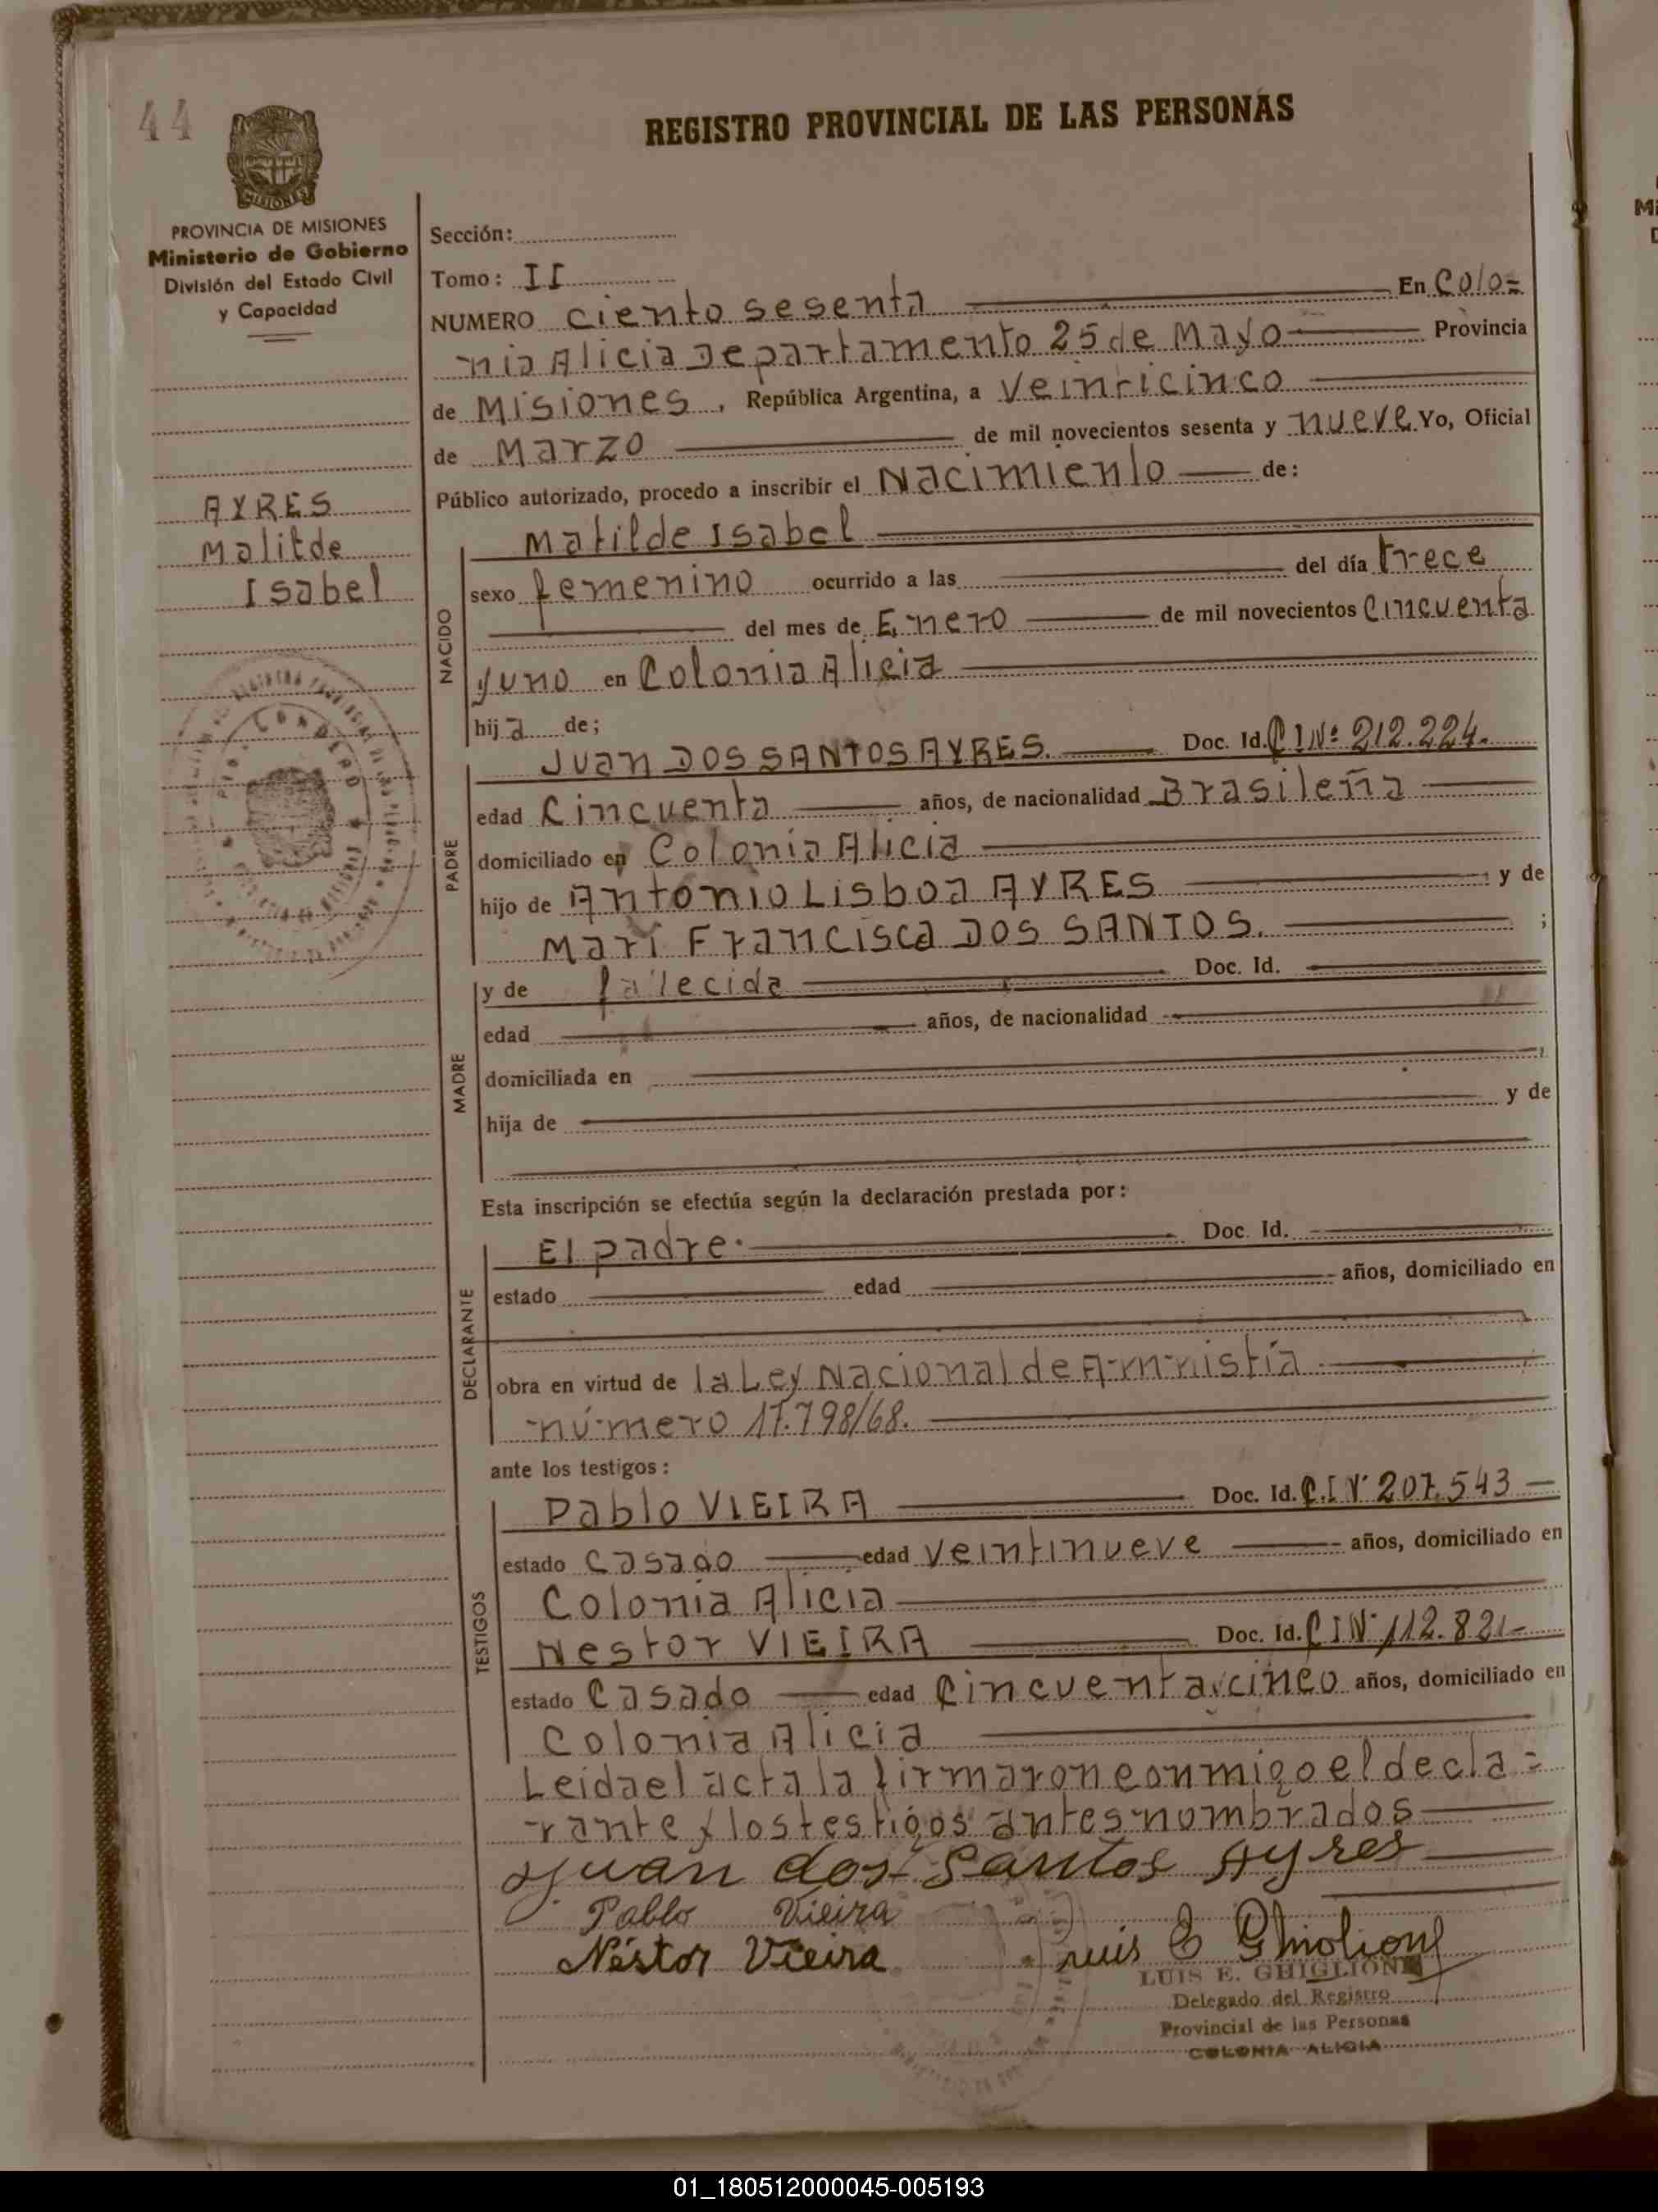 44
REGISTRO PROVINCIAL DE LAS PERSONAS
PROVINCIA DE MISIONES
Ministerio de Gobierno
División del Estado Civil
y Capacidad
AYRES
Malitde
Isabel
Sección:
Tomo: II
NUMERO ciento sesenta En Colo=
nia Alicia Departamento 25 de Mayo Provincia
de Misiones, República Argentina, a veinticinco
de Marzo de mil novecientos sesenta y nueve Yo, Oficial
Público autorizado, procedo a inscribir el Nacimiento de:
NACIDO
Matilde Isabel
sexo femenino ocurrido a las del día trece
del mes de Enero de mil novecientos cincuenta
y uno en Colonia Alicia
hija de;
PADRE
Juan DOS SANTOS AYRES. Doc. Id. C I Nº 212.224.
edad Cincuenta años, de nacionalidad Brasileña
domiciliado en Colonia Alicia
hijo de Antonio Lisboa AYRES y de
Mari Francisca DOS SANTOS. ;
MADRE
y de fallecida Doc. Id.
edad años, de nacionalidad
domiciliada en
hija de y de
Esta inscripción se efectúa según la declaración prestada por:
DECLARANTE
El padre. Doc. Id.
estado edad años, domiciliado en
obra en virtud de la Ley Nacional de Amnistía
número 17.798/68.
ante los testigos:
TESTIGOS
Pablo VIEIRA Doc. Id. C.I Nº 207.543
estado casado edad veintinueve años, domiciliado en
Colonia Alicia
Nestor VIEIRA Doc. Id. C I Nº 112.821
estado Casado edad Cincuentaycinco años, domiciliado en
Colonia Alicia
Leida el acta la firmaron conmigo el decla=
rante y los testigos antes nombrados
Juan dos Santos Ayres
Pablo Vieira
Néstor Vieira Luis E Ghiglione
LUIS E. GHIGLIONE
Delegado del Registro
Provincial de las Personas
COLONIA ALICIA
01_180512000045-005193